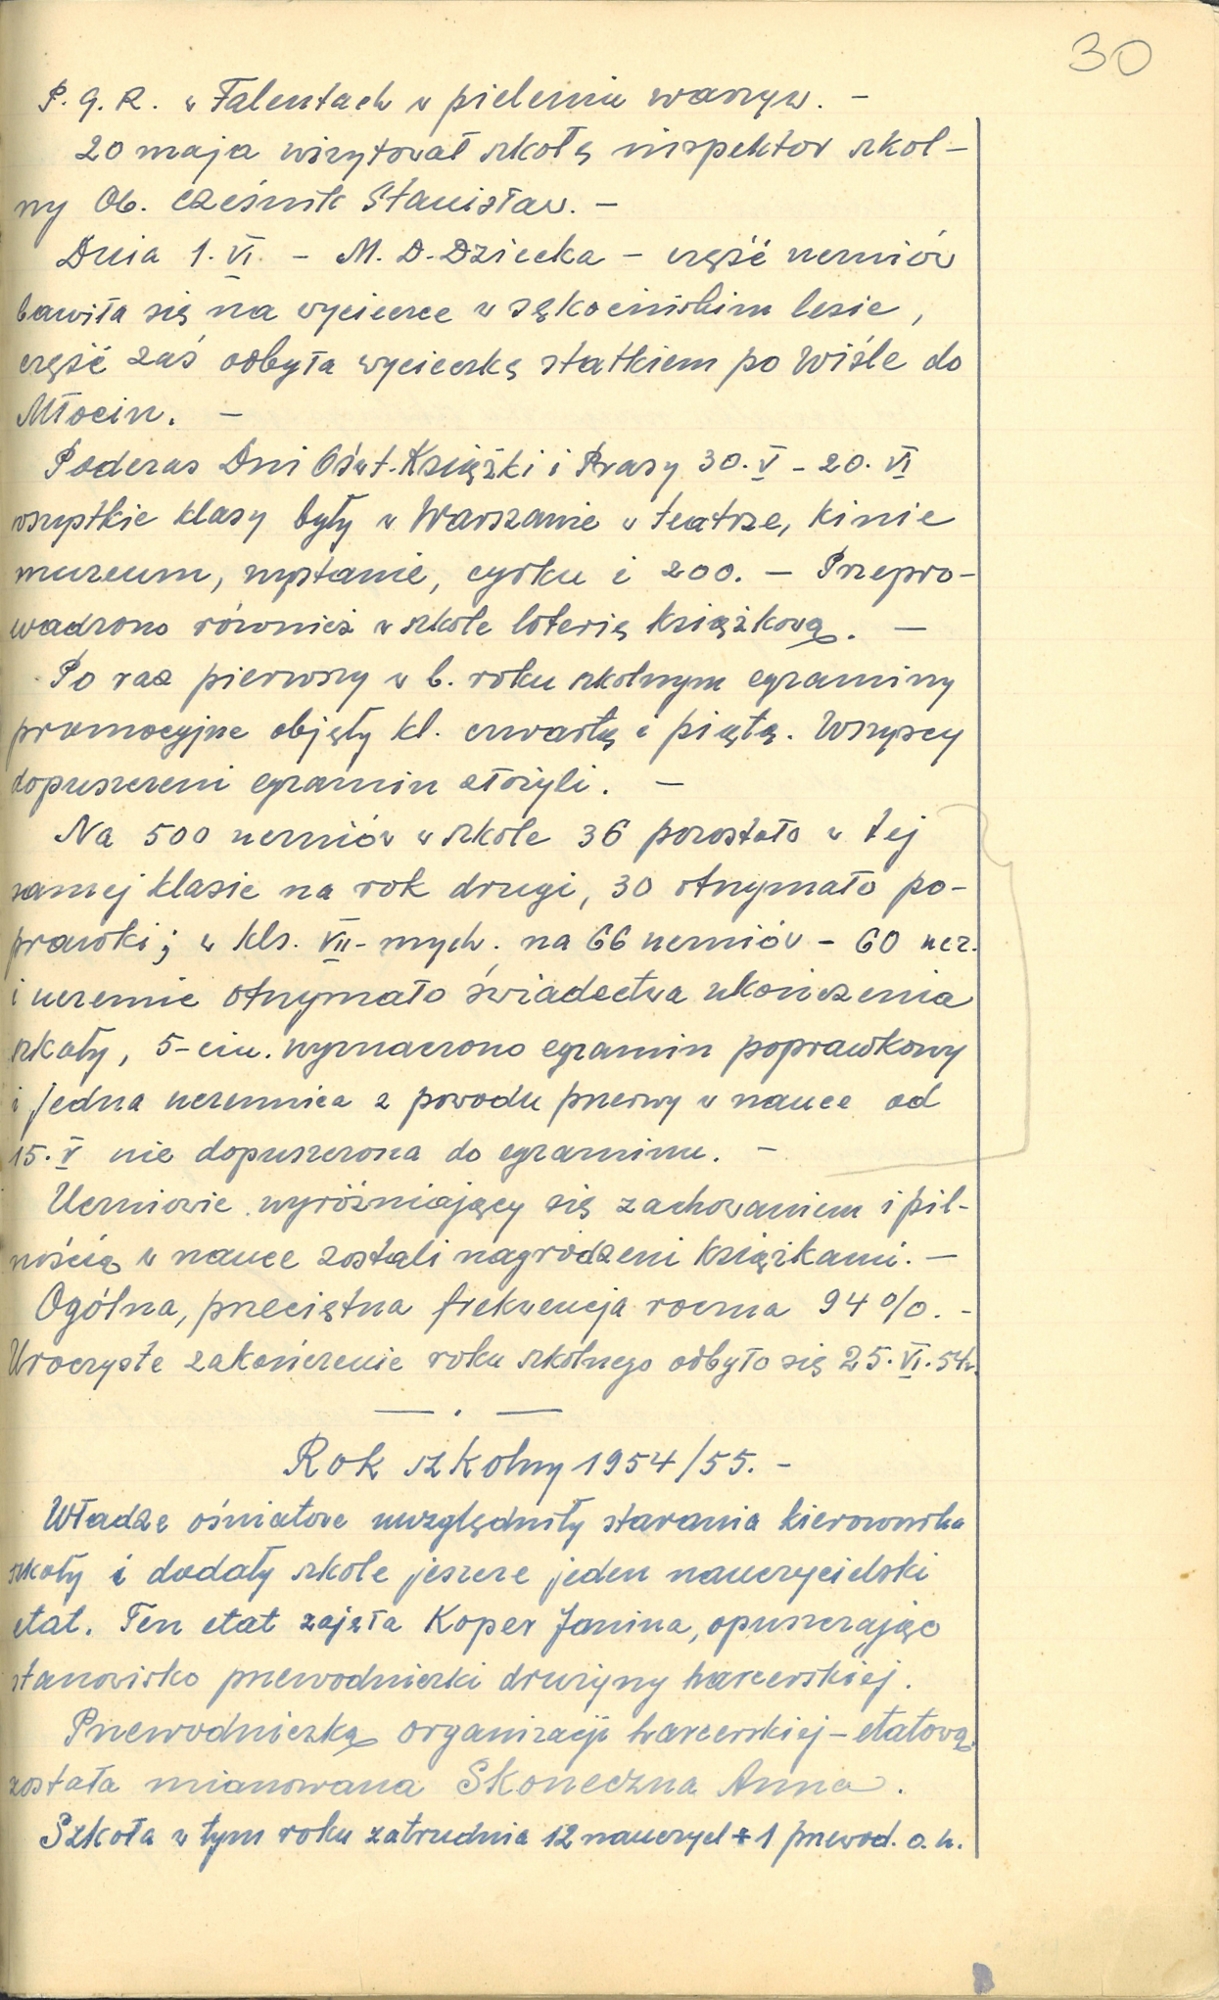 30
P. G. R. w Falentach w pieleniu warzyw. –
20 maja wizytował szkołę inspektor szkol-
ny Ob. Cześnik Stanisław. –
Dnia 1. VI. – M. D. Dziecka – część uczniów
bawiła się na wycieczce w sękocińskim lesie,
część zaś odbyła wycieczkę statkiem po Wiśle do
Młocin. –
Podczas Dni Ośw. Książki i Prasy 30. V – 20. VI
wszystkie klasy były w Warszawie w teatrze, kinie
muzeum, wystawie, cyrku i zoo. – Przepro-
wadzono również w szkole loterię książkową. –
Po raz pierwszy w b. roku szkolnym egzaminy
promocyjne objęły kl. czwartą i piątą. Wszyscy
dopuszczeni egzamin złożyli. –
Na 500 uczniów w szkole 36 pozostało w tej
samej klasie na rok drugi, 30 otrzymało po-
prawki; w kls. VII-mych. na 66 uczniów – 60 ucz.
i uczennic otrzymało świadectwa ukończenia
szkoły, 5-ciu. wyznaczono egzamin poprawkowy
i jedna uczennica z powodu przerwy w nauce od
15. V nie dopuszczona do egzaminu. –
Uczniowie wyróżniający się zachowaniem i pil-
nością w nauce zostali nagrodzeni książkami. –
Ogólna, przeciętna frekwencja roczna 94 %. –
Uroczyste zakończenie roku szkolnego odbyło się 25. VI. 54r.
Rok szkolny 1954/55. –
Władze oświatowe uwzględniły starania kierownika
szkoły i dodały szkole jeszcze jeden nauczycielski
etat. Ten etat zajęła Koper Janina, opuszczając
stanowisko przewodniczki drużyny harcerskiej.
Przewodniczką organizacji harcerskiej – etatową
została mianowana Skoneczna Anna.
Szkoła w tym roku zatrudnia 12 nauczycl + 1 przewod. o. h.